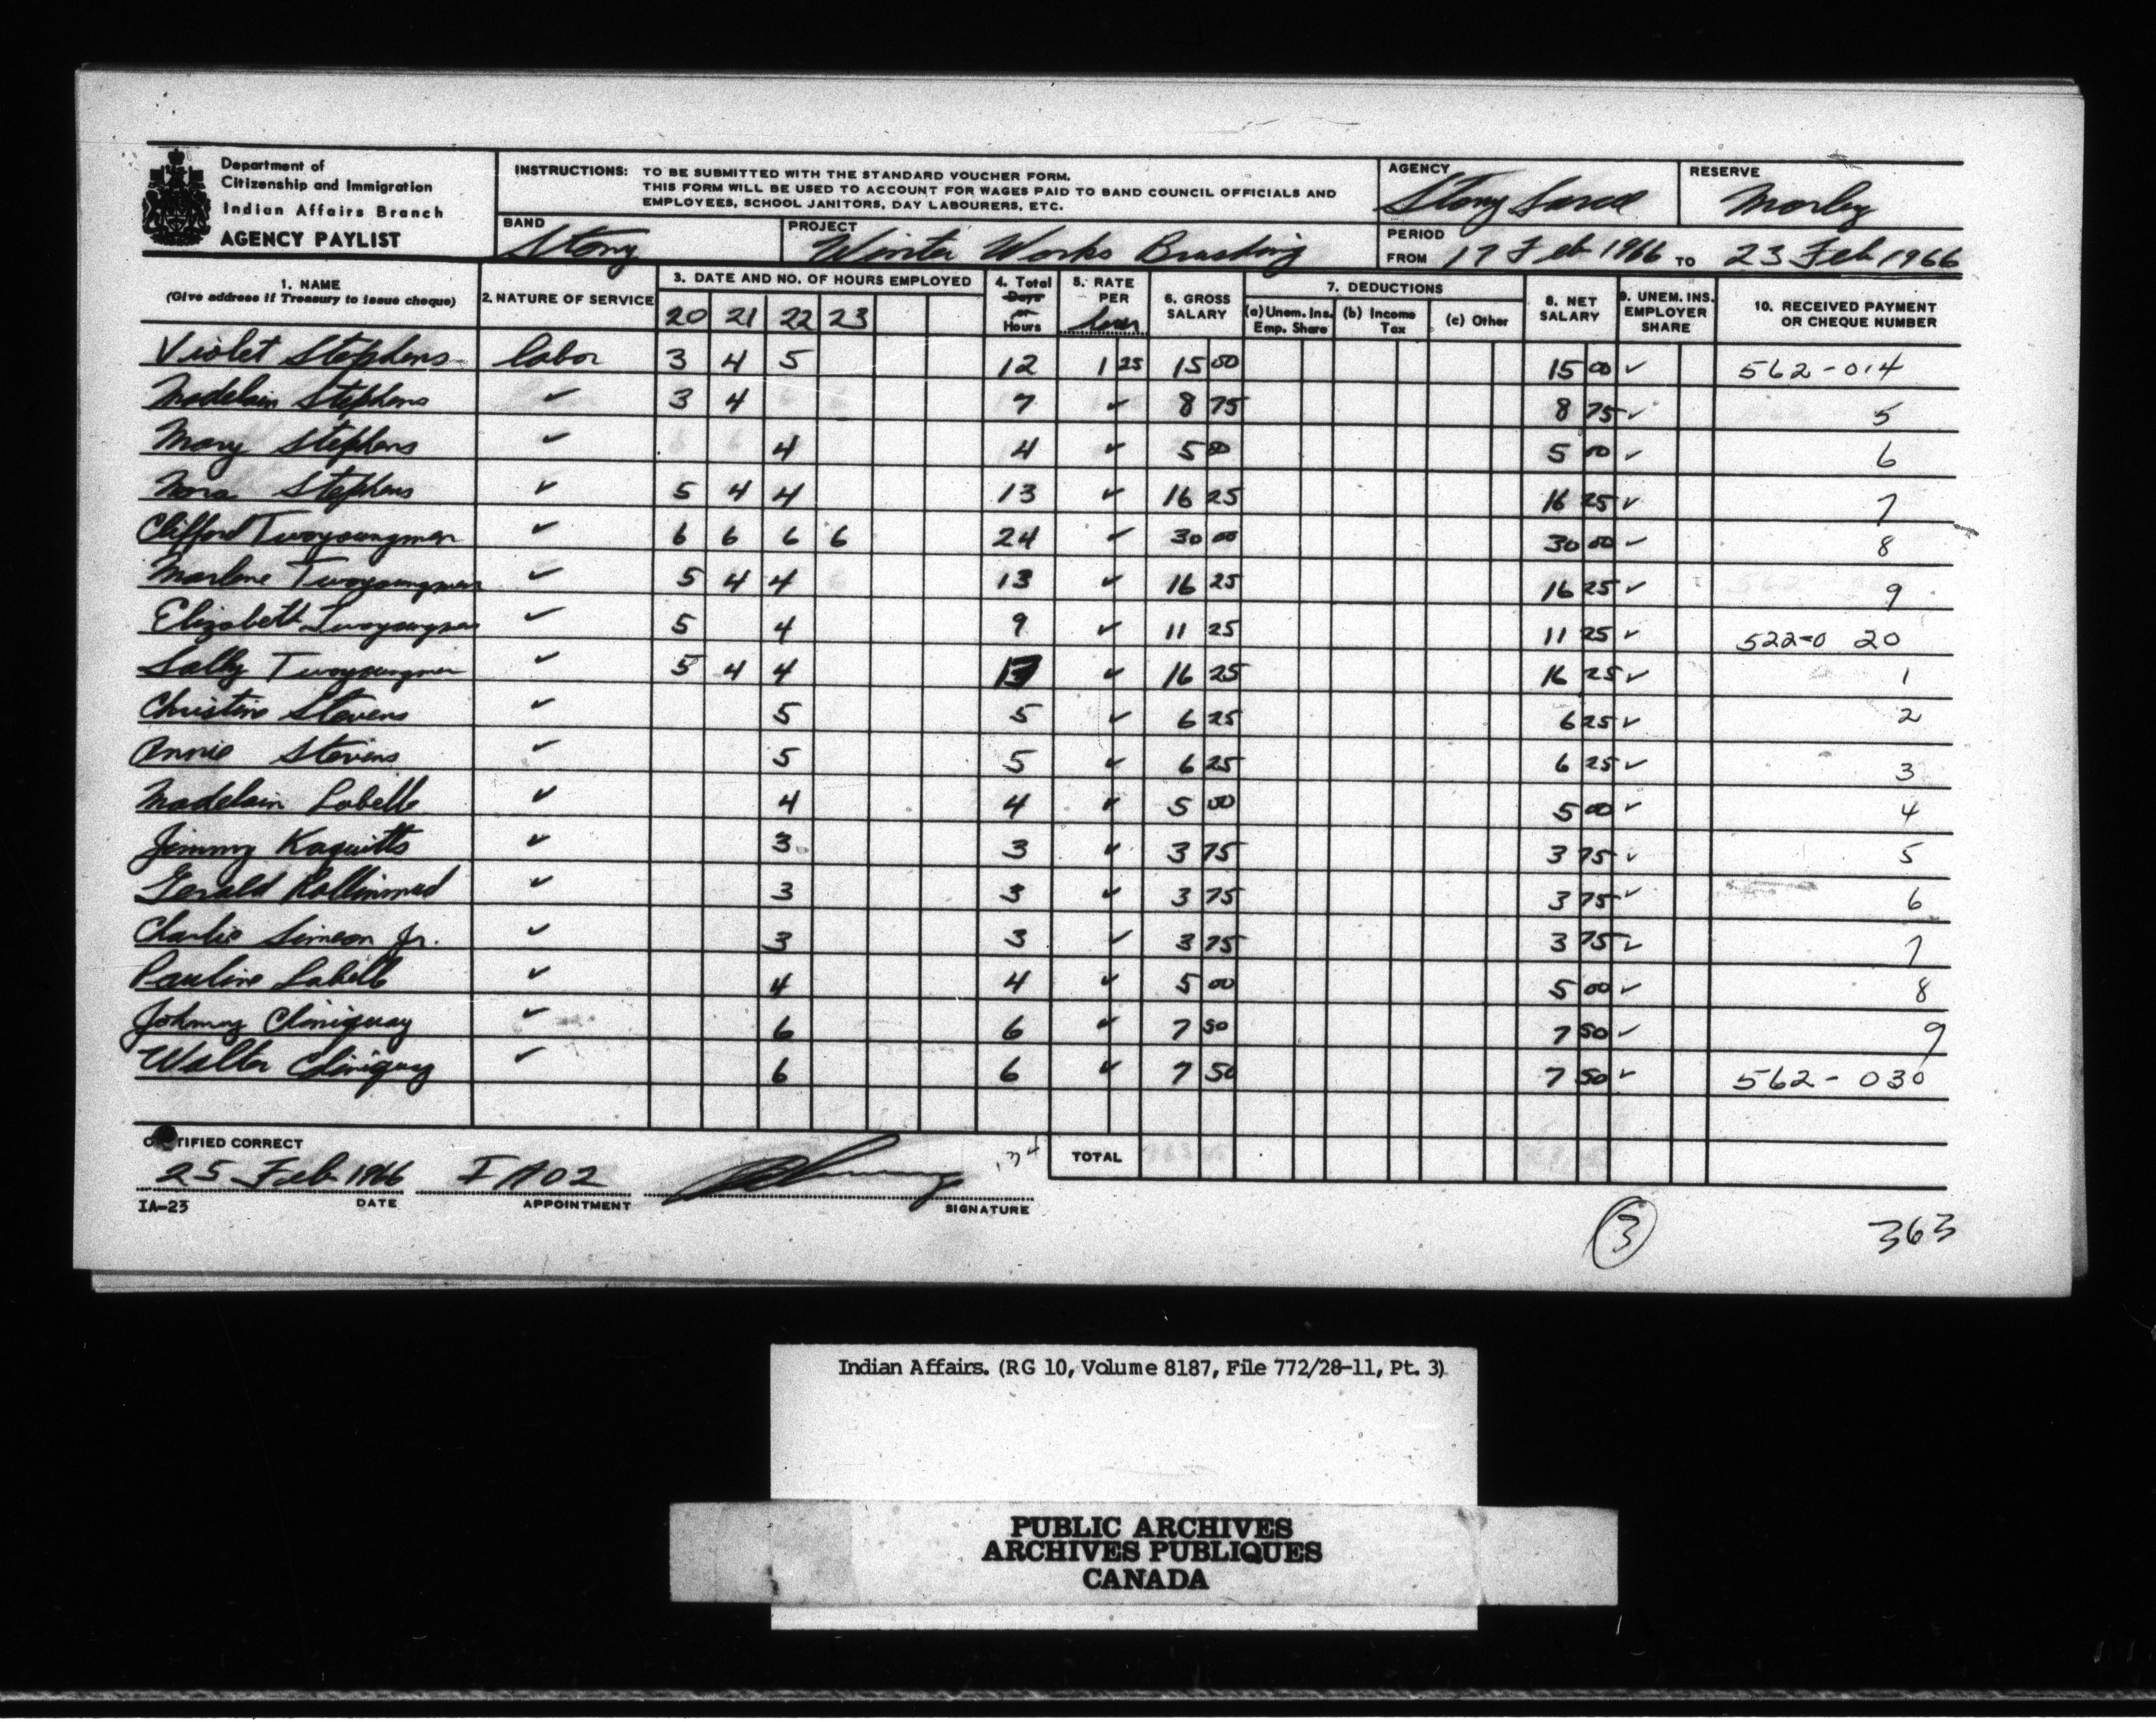 Department of
Citizenship and Immigration
Indian Affairs Branch
AGENCY PAYLIST
INSTRUCTIONS: TO BE SUBMITTED WITH THE STANDARD VOUCHER FORM.
THIS FORM WILL BE USED TO ACCOUNT FOR WAGES PAID TO BAND COUNCIL OFFICIALS AND
EMPLOYEES, SCHOOL JANITORS, DAY LABOURERS, ETC.
AGENCY
Stony Sarcee
RESERVE
Morley
BAND
Stony
PROJECT
Winter Works Brushing
PERIOD
FROM 17 Feb 1966 TO 23 Feb 1966
1. NAME
(Give address if Treasury to issue cheque)
2. NATURE OF SERVICE
3. DATE AND NO. OF HOURS EMPLOYED
20 21 22 23
4. Total
Days
or
Hours
5. RATE
PER
hour
6. GROSS
SALARY
7. DEDUCTIONS
(a) Unem. Ins.
Emp. Share
(b) Income
Tax
(c) Other
8. NET
SALARY
9. UNEM. INS.
EMPLOYER
SHARE
10. RECEIVED PAYMENT
OR CHEQUE NUMBER
Violet Stephens labor 3 4 5 12 1 25 15 00 15 00 ✓ 562-014
Madelain Stephens ✓ 3 4 7 ✓ 8 75 8 75 ✓ 5
Mary Stephens ✓ 4 4 ✓ 5 00 5 00 ✓ 6
Nora Stephens ✓ 5 4 4 13 ✓ 16 25 16 25 ✓ 7
Clifford Twoyoungmen ✓ 6 6 6 6 24 ✓ 30 00 30 00 ✓ 8
Marlene Twoyoungmen ✓ 5 4 4 13 ✓ 16 25 16 25 ✓ 9
Elizabeth Twoyoungmen ✓ 5 4 9 ✓ 11 25 11 25 ✓ 522-0 20
Sally Twoyoungmen ✓ 5 4 4 13 ✓ 16 25 16 25 ✓ 1
Christine Stevens ✓ 5 5 ✓ 6 25 6 25 ✓ 2
Annie Stevens ✓ 5 5 ✓ 6 25 6 25 ✓ 3
Madelain Labelle ✓ 4 4 ✓ 5 00 5 00 ✓ 4
Jimmy Kaquitts ✓ 3 3 ✓ 3 75 3 75 ✓ 5
Gerald Rollinmud ✓ 3 3 ✓ 3 75 3 75 ✓ 6
Charlie Simeon Jr. ✓ 3 3 ✓ 3 75 3 75 ✓ 7
Pauline Labelle ✓ 4 4 ✓ 5 00 5 00 ✓ 8
Johnny Cliniquay ✓ 6 6 ✓ 7 50 7 50 ✓ 9
Walter Cliniquay ✓ 6 6 ✓ 7 50 7 50 ✓ 562-030
CERTIFIED CORRECT
TOTAL
25 Feb 1966 IA02
DATE APPOINTMENT SIGNATURE
IA-23
3
363
Indian Affairs. (RG 10, Volume 8187, File 772/28-11, Pt. 3)
PUBLIC ARCHIVES
ARCHIVES PUBLIQUES
CANADA